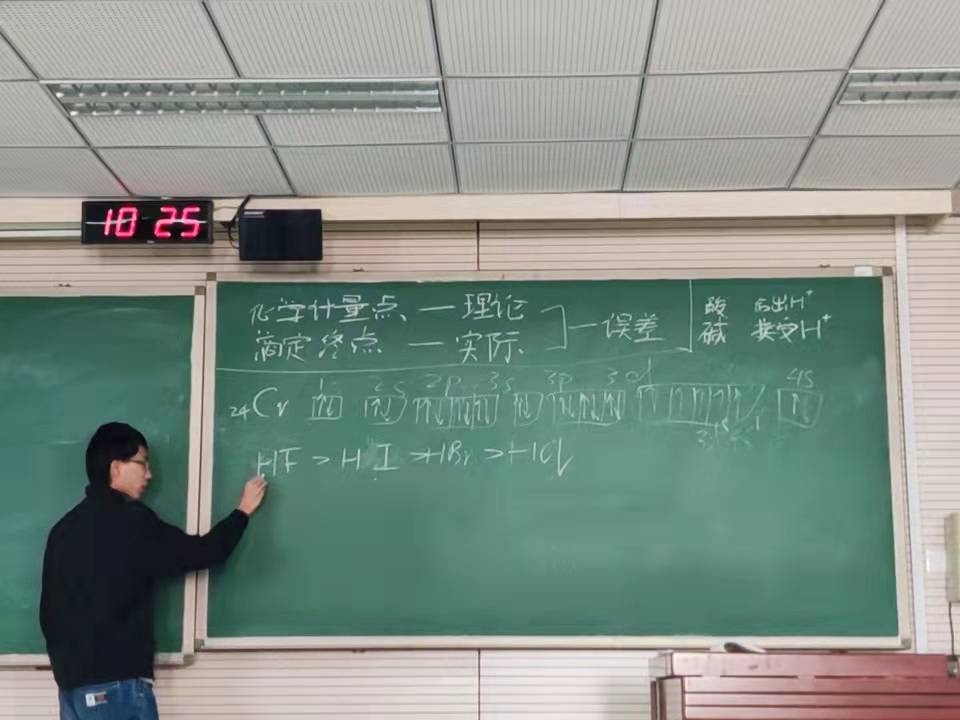 10 25
化学计量点 — 理论
滴定终点 — 实际
— 误差
酸 给出H⁺
碱 接受H⁺
2s 2p 3s 3p 3d 4s
₂₄Cr
HF > HI > HBr > HCl